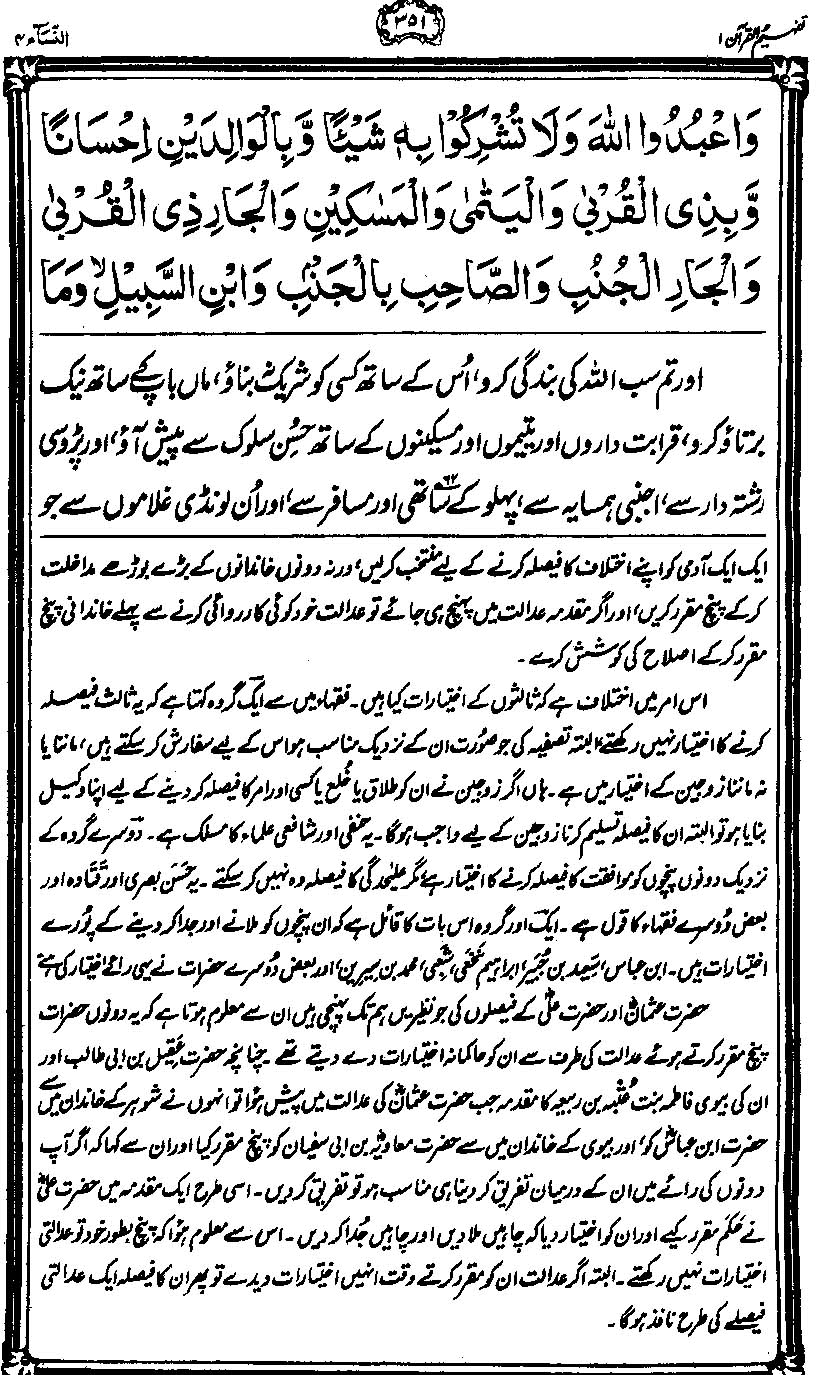 تفہیم القرآن ۱
۳۵۱
النسآء ۴
وَاعْبُدُوا اللّٰهَ وَلَا تُشْرِكُوْا بِهٖ شَيْـًٔا وَّبِالْوَالِدَيْنِ اِحْسَانًا
وَّبِذِى الْقُرْبٰى وَالْيَتٰمٰى وَالْمَسٰكِيْنِ وَالْجَارِ ذِى الْقُرْبٰى
وَالْجَارِ الْجُنُبِ وَالصَّاحِبِ بِالْجَنْۢبِ وَابْنِ السَّبِيْلِ ۙ وَمَا
اور تم سب اللہ کی بندگی کرو، اُس کے ساتھ کسی کو شریک نہ بناؤ، ماں باپ کے ساتھ نیک
برتاؤ کرو، قرابت داروں اور یتیموں اور مسکینوں کے ساتھ حُسنِ سلوک سے پیش آؤ، اور پڑوسی
رشتہ دار سے، اجنبی ہمسایہ سے، پہلو کے ساتھی اور مسافر سے، اور اُن لونڈی غلاموں سے جو
ایک ایک آدمی کو اپنے اختلاف کا فیصلہ کرنے کے لیے منتخب کریں، ورنہ دونوں خاندانوں کے بڑے بوڑھے مداخلت
کر کے پنچ مقرر کریں، اور اگر مقدمہ عدالت میں پہنچ ہی جائے تو عدالت خود کوئی کارروائی کرنے سے پہلے خاندانی پنچ
مقرر کر کے اصلاح کی کوشش کرے۔
اس امر میں اختلاف ہے کہ ثالثوں کے اختیارات کیا ہیں۔ فقہاء میں سے ایک گروہ کہتا ہے کہ یہ ثالث فیصلہ
کرنے کا اختیار نہیں رکھتے، البتہ تصفیہ کی جو صورت ان کے نزدیک مناسب ہو اس کے لیے سفارش کر سکتے ہیں، ماننا یا
نہ ماننا زوجین کے اختیار میں ہے۔ ہاں اگر زوجین نے ان کو طلاق یا خُلع یا کسی اور امر کا فیصلہ کر دینے کے لیے اپنا وکیل
بنایا ہو تو البتہ ان کا فیصلہ تسلیم کرنا زوجین کے لیے واجب ہوگا۔ یہ حنفی اور شافعی علماء کا مسلک ہے۔ دوسرے گروہ کے
نزدیک دونوں پنچوں کو موافقت کا فیصلہ کرنے کا اختیار ہے، مگر علیٰحدگی کا فیصلہ وہ نہیں کر سکتے۔ یہ حَسَن بصری اور قَتَادہ اور
بعض دُوسرے فقہاء کا قول ہے۔ ایک اور گروہ اس بات کا قائل ہے کہ ان پنچوں کو ملانے اور جدا کر دینے کے پُورے
اختیارات ہیں۔ ابن عباس، سعید بن جُبَیر، ابراہیم نَخَعی، شَعبِی، محمد بن سیرین، اور بعض دُوسرے حضرات نے یہی رائے اختیار کی ہے
حضرت عثمانؓ اور حضرت علیؓ کے فیصلوں کی جو نظیریں ہم تک پہنچی ہیں ان سے معلوم ہوتا ہے کہ یہ دونوں حضرات
پنچ مقرر کرتے ہوئے عدالت کی طرف سے ان کو حاکمانہ اختیارات دے دیتے تھے۔ چنانچہ حضرت عَقیل بن ابی طالب اور
ان کی بیوی فاطمہ بنت عُتبہ بن ربیعہ کا مقدمہ جب حضرت عثمانؓ کی عدالت میں پیش ہوا تو انہوں نے شوہر کے خاندان میں سے
حضرت ابن عباسؓ کو، اور بیوی کے خاندان میں سے حضرت معاویہؓ بن ابی سفیان کو پنچ مقرر کیا اور ان سے کہا کہ اگر آپ
دونوں کی رائے میں ان کے درمیان تفریق کر دینا ہی مناسب ہو تو تفریق کر دیں۔ اسی طرح ایک مقدمہ میں حضرت علیؓ
نے حَکَم مقرر کیے اور ان کو اختیار دیا کہ چاہیں ملا دیں اور چاہیں جُدا کر دیں۔ اس سے معلوم ہوا کہ پنچ بطور خود تو عدالتی
اختیارات نہیں رکھتے۔ البتہ اگر عدالت ان کو مقرر کرتے وقت انہیں اختیارات دیدے تو پھر ان کا فیصلہ ایک عدالتی
فیصلے کی طرح نافذ ہوگا۔